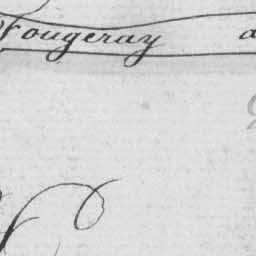 Fougeray a